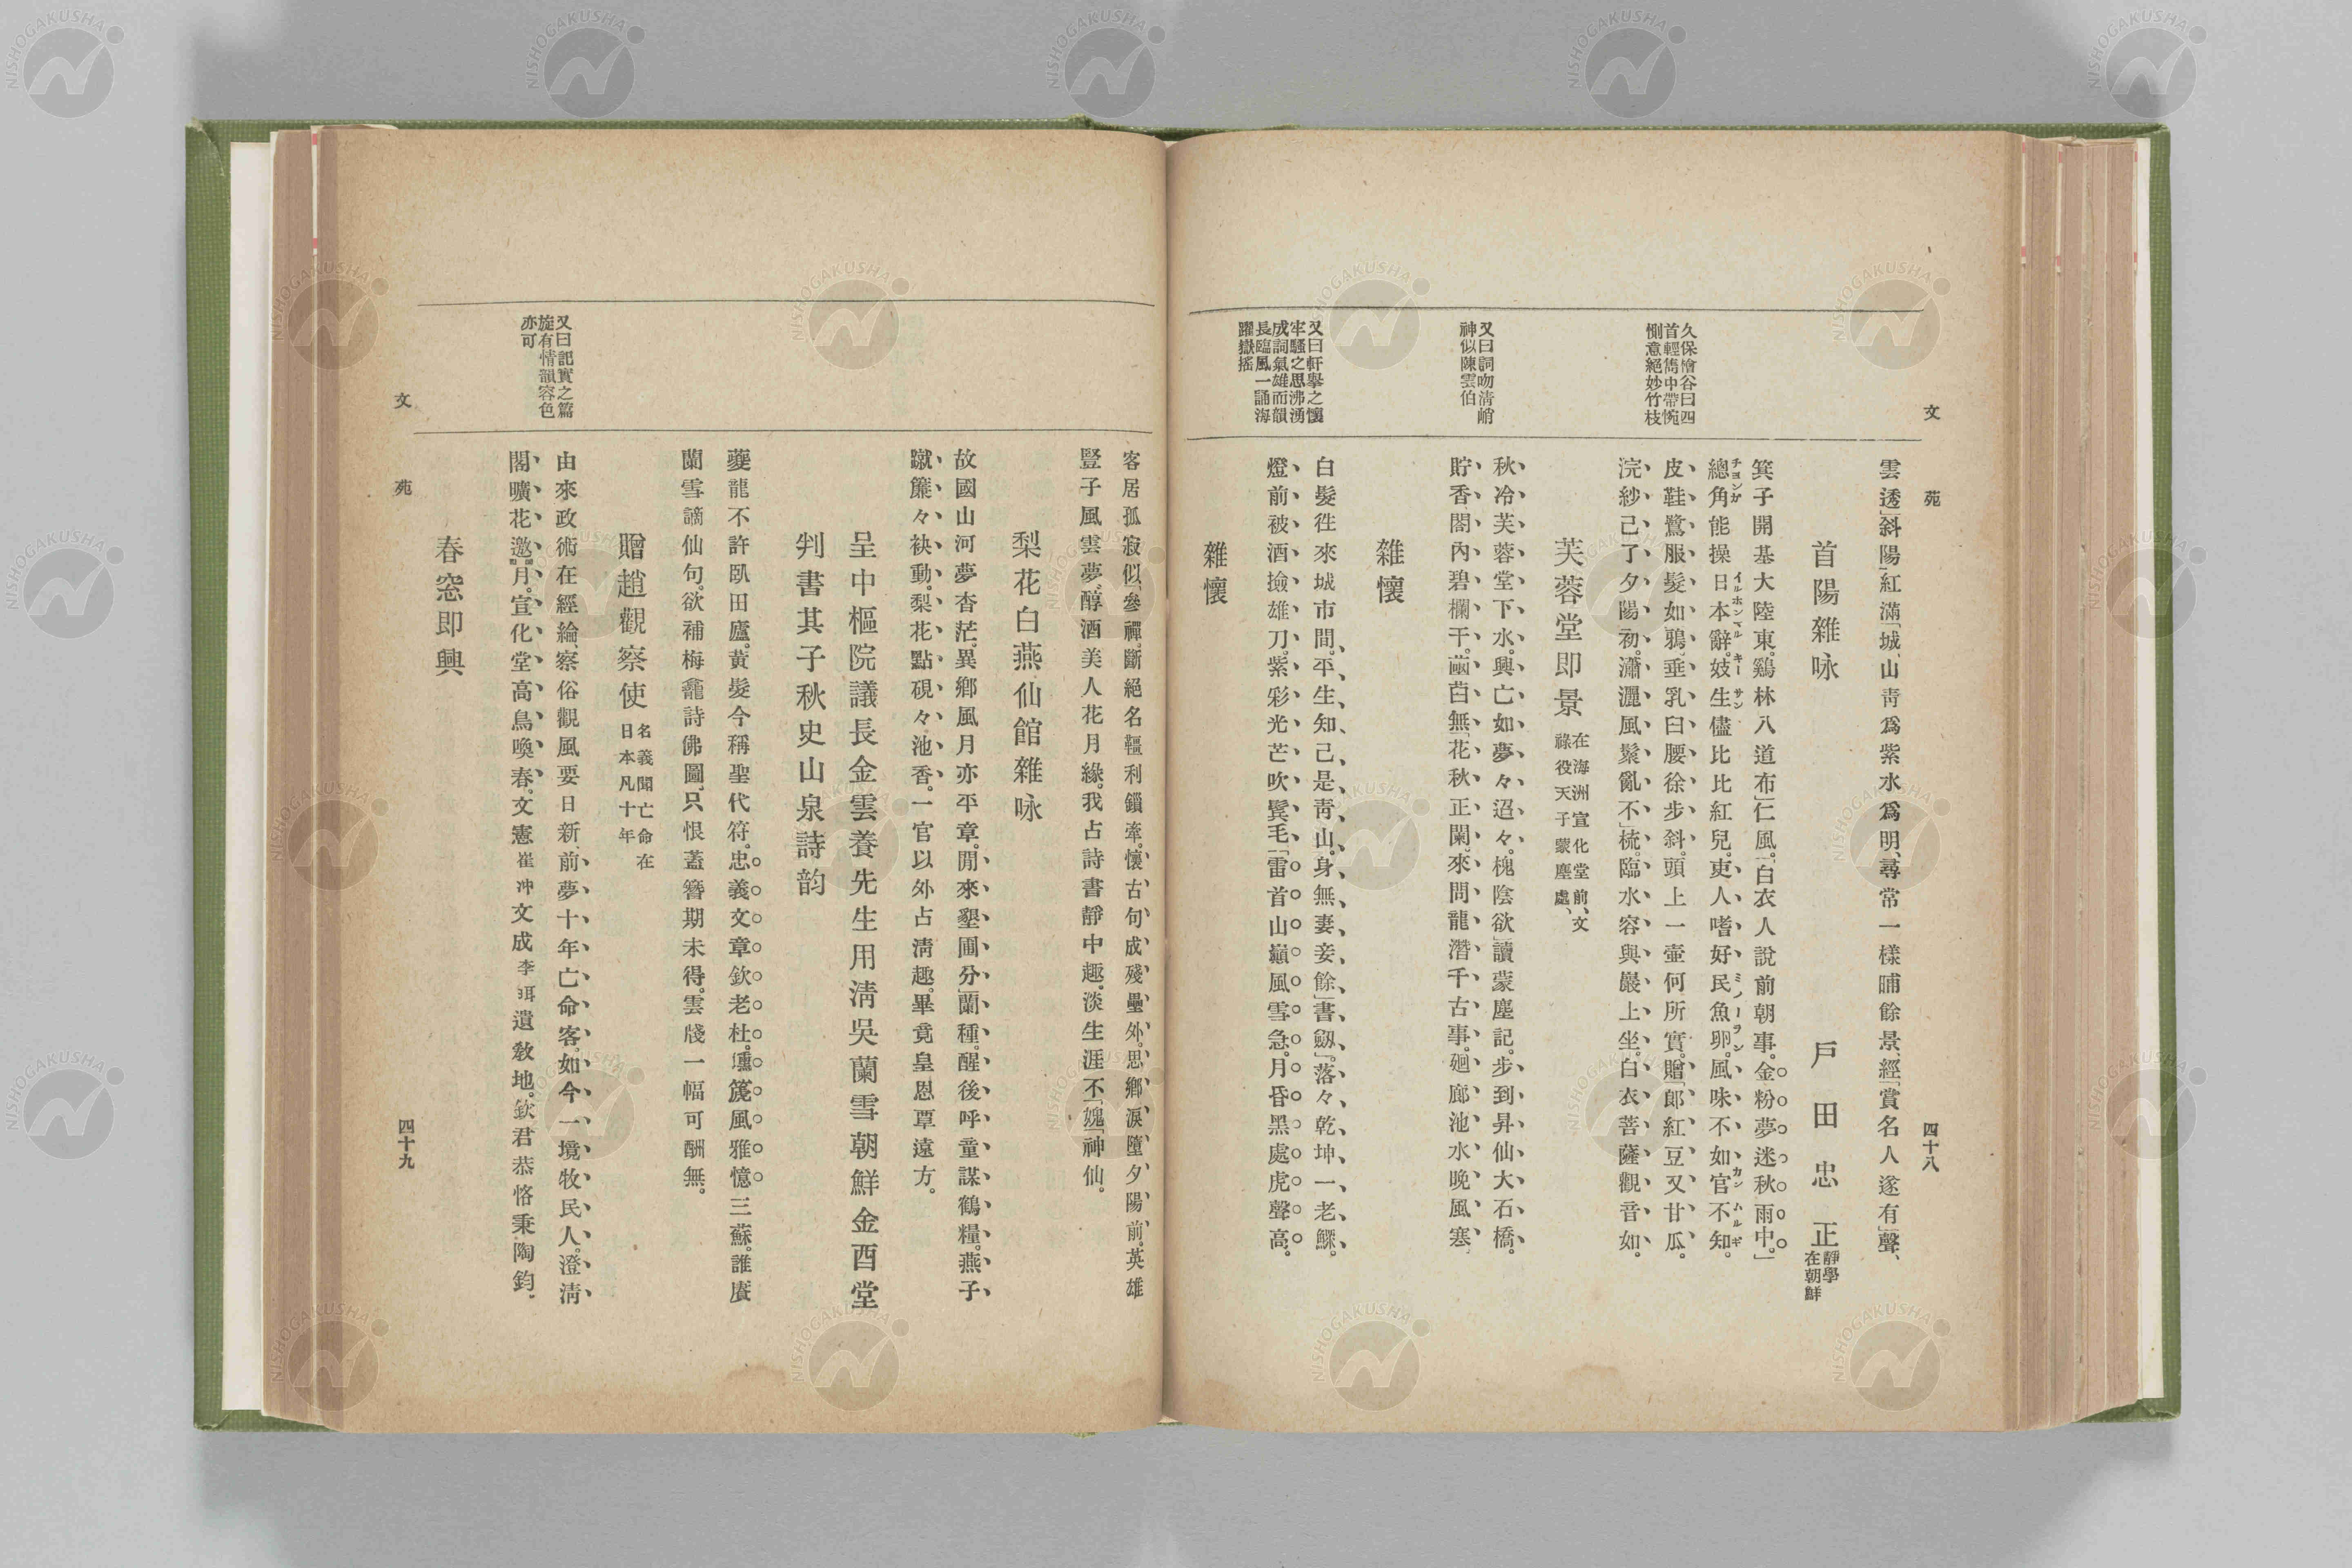 文苑
四十八
久保檜谷曰四
首輕雋中帶惋
惻意絕妙竹枝
又曰詞吻清峭
神似陳雲伯
又曰軒擧之懷
牢騷之思沸湧
成詞氣雄而韻
長臨風一誦海
躍嶽搖
雲透斜陽紅滿城、山靑爲紫水爲明、尋常一樣晡餘景、經賞名人遂有聲、
首陽雜咏
戶田忠正
靜學
在朝鮮
箕子開基大陸東。鷄林八道布仁風。白衣人說前朝事。金粉夢迷秋雨中。
總角能操日本辭。妓生儘比比紅兒。吏人嗜好民魚卵。風味不如官不知。
チヨンガ イルホンマル キーサン ミノーヲン カンハルギ
皮鞋鷺服髮如鴉、垂乳白腰徐步斜。頭上一壷何所實。贈郞紅豆又甘瓜。
浣紗已了夕陽初。瀟灑風鬟亂不梳。臨水容與巖上坐。白衣菩薩觀音如。
芙蓉堂即景
在海洲宣化堂前、文
祿役天子蒙塵處、
秋冷芙蓉堂下水。興亡如夢々迢々。槐陰欲讀蒙塵記。步到昇仙大石橋。
貯香閣內碧欄干。菡萏無花秋正闌。來問龍潛千古事。廻廊池水晚風寒
雜懷
白髮徃來城市間、平生知己是靑山。身無妻妾餘書劒。落々乾坤一老鰥。
燈前被酒撿雄刀。紫彩光芒吹鬂毛、雷首山巓風雪急。月昏黑處虎聲高。
雜懷
客居孤寂似參禪。斷絕名韁利鎖牽。懷古句成殘壘外。思鄉淚墮夕陽前。英雄
豎子風雲夢、醇酒美人花月緣。我占詩書靜中趣。淡生涯不媿神仙。
梨花白燕仙館雜咏
故國山河夢杳茫。異鄕風月亦平章。閒來墾圃分蘭種。醒後呼童謀鶴糧。燕子
蹴簾々袂動。梨花點硯々池香。一官以外占淸趣。畢竟皇恩覃遠方。
呈中樞院議長金雲養先生用淸吳蘭雪朝鮮金酉堂
判書其子秋史山泉詩韵
夔龍不許臥田廬。黃髮今稱聖代符。忠義文章欽老杜。壎箎風雅憶三蘇。誰賡
蘭雪謫仙句。欲補梅龕詩佛圖。只恨蓋簪期未得。雲牋一幅可酬無。
贈趙觀察使
名義聞亡命在
日本凡十年
由來政術在經綸、察俗觀風要日新、前夢十年亡命客。如今一境牧民人。澄淸
閣曠花邀月。宣化堂高鳥喚春。文憲崔冲文成李珥遺敎地。欽君恭恪秉陶鈞。
春窓即興
又曰記實之篇
旋有情韻容色
亦可
文苑
四十九
NISHOGAKUSHA